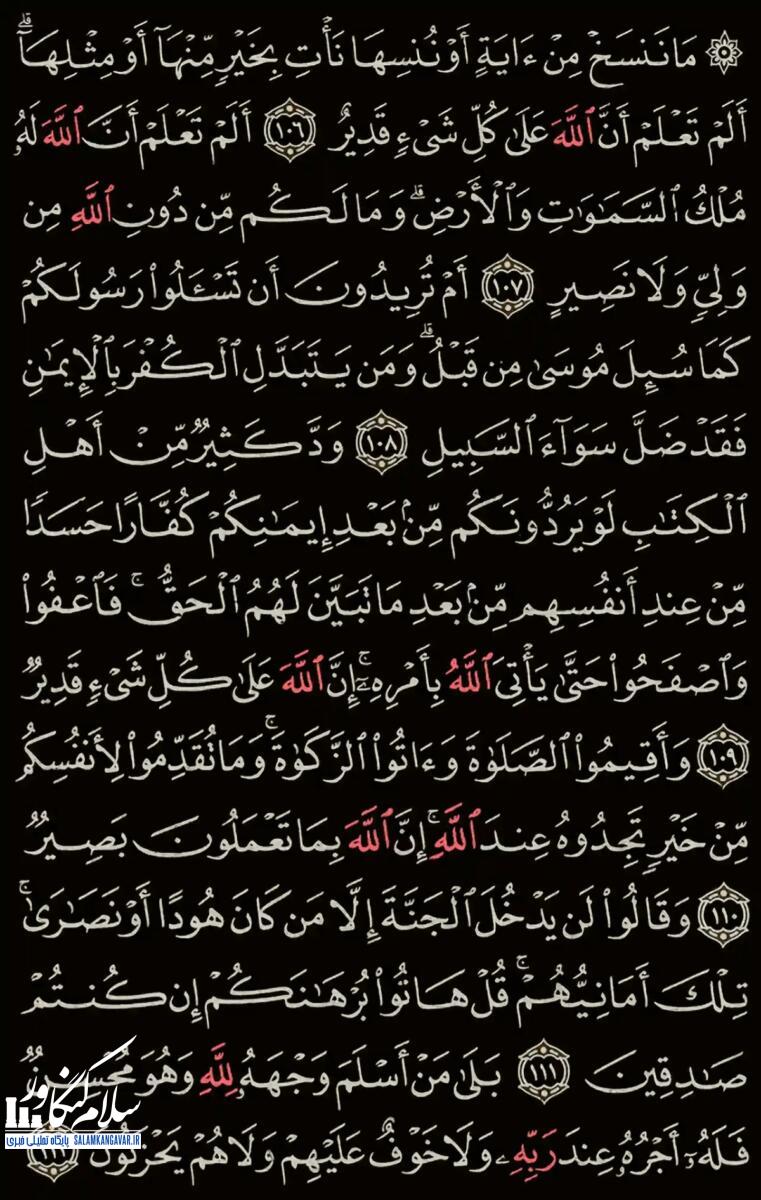 ۞ مَا نَنسَخْ مِنْ ءَايَةٍ أَوْ نُنسِهَا نَأْتِ بِخَيْرٍ مِّنْهَآ أَوْ مِثْلِهَآ ۗ
أَلَمْ تَعْلَمْ أَنَّ ٱللَّهَ عَلَىٰ كُلِّ شَىْءٍ قَدِيرٌ ١٠٦ أَلَمْ تَعْلَمْ أَنَّ ٱللَّهَ لَهُۥ
مُلْكُ ٱلسَّمَٰوَٰتِ وَٱلْأَرْضِ ۗ وَمَا لَكُم مِّن دُونِ ٱللَّهِ مِن
وَلِىٍّ وَلَا نَصِيرٍ ١٠٧ أَمْ تُرِيدُونَ أَن تَسْـَٔلُوا۟ رَسُولَكُمْ
كَمَا سُئِلَ مُوسَىٰ مِن قَبْلُ ۗ وَمَن يَتَبَدَّلِ ٱلْكُفْرَ بِٱلْإِيمَٰنِ
فَقَدْ ضَلَّ سَوَآءَ ٱلسَّبِيلِ ١٠٨ وَدَّ كَثِيرٌ مِّنْ أَهْلِ
ٱلْكِتَٰبِ لَوْ يَرُدُّونَكُم مِّنۢ بَعْدِ إِيمَٰنِكُمْ كُفَّارًا حَسَدًا
مِّنْ عِندِ أَنفُسِهِم مِّنۢ بَعْدِ مَا تَبَيَّنَ لَهُمُ ٱلْحَقُّ ۖ فَٱعْفُوا۟
وَٱصْفَحُوا۟ حَتَّىٰ يَأْتِىَ ٱللَّهُ بِأَمْرِهِۦٓ ۗ إِنَّ ٱللَّهَ عَلَىٰ كُلِّ شَىْءٍ قَدِيرٌ
١٠٩ وَأَقِيمُوا۟ ٱلصَّلَوٰةَ وَءَاتُوا۟ ٱلزَّكَوٰةَ ۚ وَمَا تُقَدِّمُوا۟ لِأَنفُسِكُم
مِّنْ خَيْرٍ تَجِدُوهُ عِندَ ٱللَّهِ ۗ إِنَّ ٱللَّهَ بِمَا تَعْمَلُونَ بَصِيرٌ
١١٠ وَقَالُوا۟ لَن يَدْخُلَ ٱلْجَنَّةَ إِلَّا مَن كَانَ هُودًا أَوْ نَصَٰرَىٰ ۗ
تِلْكَ أَمَانِيُّهُمْ ۗ قُلْ هَاتُوا۟ بُرْهَٰنَكُمْ إِن كُنتُمْ
صَٰدِقِينَ ١١١ بَلَىٰ مَنْ أَسْلَمَ وَجْهَهُۥ لِلَّهِ وَهُوَ مُحْسِنٌ
فَلَهُۥٓ أَجْرُهُۥ عِندَ رَبِّهِۦ وَلَا خَوْفٌ عَلَيْهِمْ وَلَا هُمْ يَحْزَنُونَ ١١٢
سلام کنگاور
پایگاه تحلیلی خبری SALAMKANGAVAR.IR